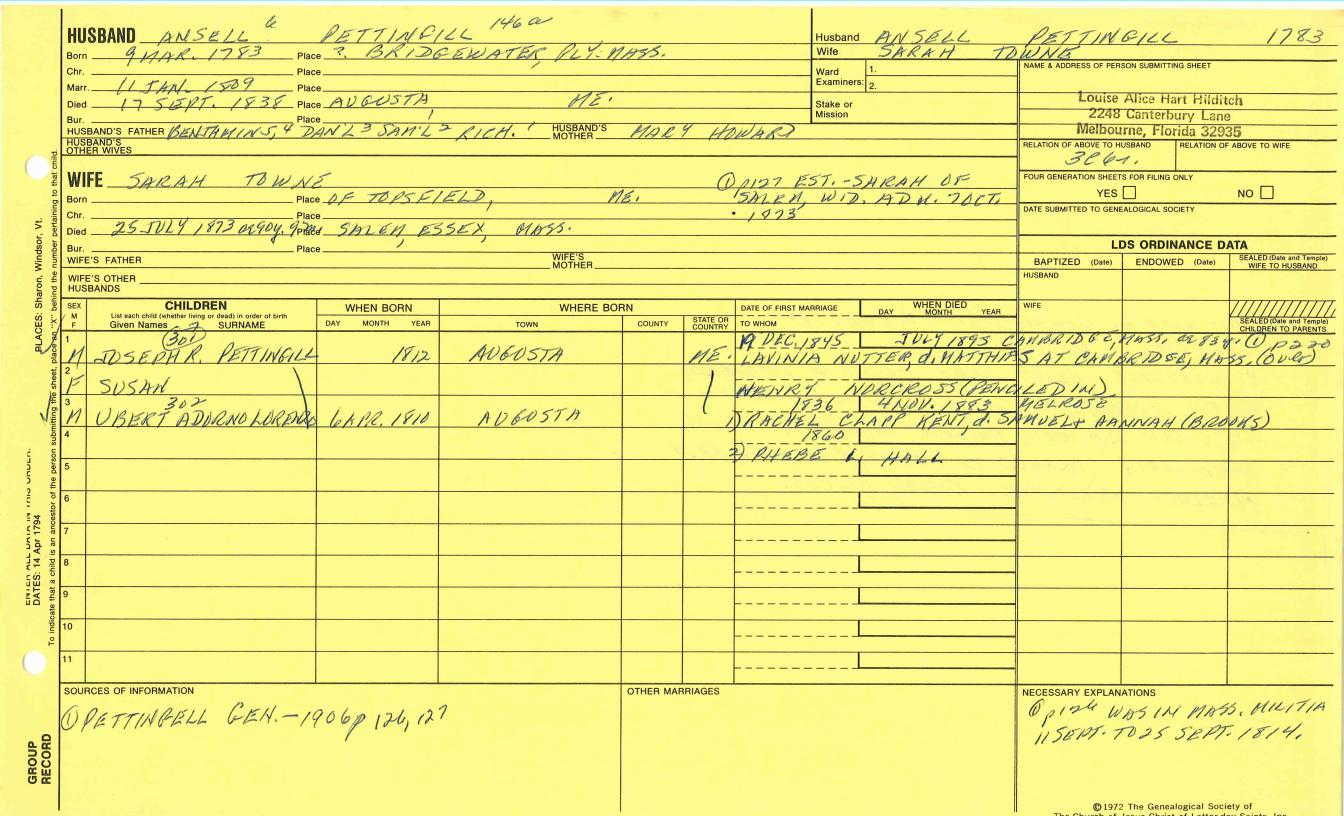 HUSBAND ANSELL 6 PETTINGILL 146a
Born 9 MAR. 1783 Place ?. BRIDGEWATER, PLY. MASS.
Chr. Place
Marr. 11 JAN. 1809 Place
Died 17 SEPT. 1838 Place AUGUSTA, ME.
Bur. Place
HUSBAND'S FATHER BENJAMIN 5, 4 DAN'L 3 SAM'L 2 RICH. 1 HUSBAND'S MOTHER MARY HOWARD
HUSBAND'S OTHER WIVES
Husband ANSELL PETTINGILL 1783
Wife SARAH TOWNE
Ward Examiners: 1.
2.
Stake or Mission
NAME & ADDRESS OF PERSON SUBMITTING SHEET
Louise Alice Hart Hilditch
2248 Canterbury Lane
Melbourne, Florida 32935
RELATION OF ABOVE TO HUSBAND RELATION OF ABOVE TO WIFE
FOUR GENERATION SHEETS FOR FILING ONLY
YES NO
DATE SUBMITTED TO GENEALOGICAL SOCIETY
WIFE SARAH TOWNE
Born Place OF TOPSFIELD, ME.
Chr. Place
Died 25 JULY 1873 Place SALEM, ESSEX, MASS.
Bur. Place
① p127 EST. -SARAH OF
SALEM, WID. ADM. 7 OCT.
1873
WIFE'S FATHER WIFE'S MOTHER
WIFE'S OTHER HUSBANDS
LDS ORDINANCE DATA
BAPTIZED (Date) ENDOWED (Date) SEALED (Date and Temple) WIFE TO HUSBAND
HUSBAND
WIFE
SEALED (Date and Temple) CHILDREN TO PARENTS
SEX M F CHILDREN
List each child (whether living or dead) in order of birth
Given Names SURNAME
WHEN BORN DAY MONTH YEAR
WHERE BORN TOWN COUNTY STATE OR COUNTRY
DATE OF FIRST MARRIAGE
TO WHOM
WHEN DIED DAY MONTH YEAR
1 301 19 DEC, 1845 JULY 1895 CAMBRIDGE, MASS. ae 83y. ① p220
M JOSEPH R. PETTINGILL 1812 AUGUSTA ME. LAVINIA NUTTER, d. MATTHIAS AT CAMBRIDGE, MASS, (OVER)
2
F SUSAN HENRY NORCROSS (PENCILED IN)
3 302 1836 4 NOV. 1883 MELROSE
M UBERT ADORNO LORENZO 6 APR. 1810 AUGUSTA 1) RACHEL CLAPP KENT, d. SAMUEL & HANNAH (BROOKS)
4 1860
2) PHEBE L. HALL
5
6
7
8
9
10
11
SOURCES OF INFORMATION
① PETTINGELL GEN. - 1906 p 126, 127
OTHER MARRIAGES
NECESSARY EXPLANATIONS
① p126 WAS IN MASS. MILITIA
11 SEPT. TO 25 SEPT. 1814.
©1972 The Genealogical Society of
The Church of Jesus Christ of Latter-day Saints, Inc.
GROUP RECORD
ENTER ALL DATA IN THIS ORDER:
DATES: 14 Apr 1794
PLACES: Sharon, Windsor, Vt.
To indicate that a child is an ancestor of the person submitting the sheet, place an "X" behind the number pertaining to that child.